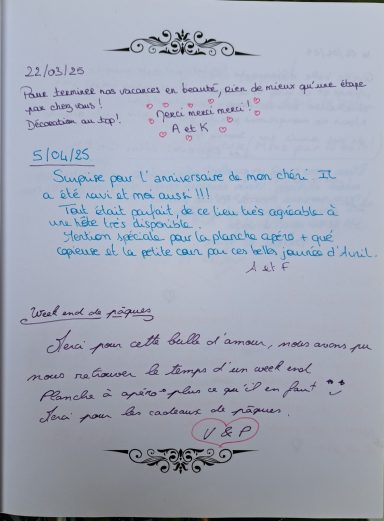 22/03/25
Pour terminer nos vacances en beauté, rien de mieux qu'une étape
par chez vous !
Merci merci merci !
Décoration au top !
A et K
5/04/25
Surprise pour l'anniversaire de mon chéri. Il
a été ravi et moi aussi !!!
Tout était parfait, de ce lieu très agréable à
une hôte très disponible.
Mention spéciale pour la planche apéro + que
copieuse et la petite cour par ces belles journée d'Avril.
A et F
Week end de pâques
Merci pour cette bulle d'amour, nous avons pu
nous retrouver le temps d'un week end
Planche à apéro + plus ce qu'il en faut
Merci pour les cadeaux de pâques.
V & P